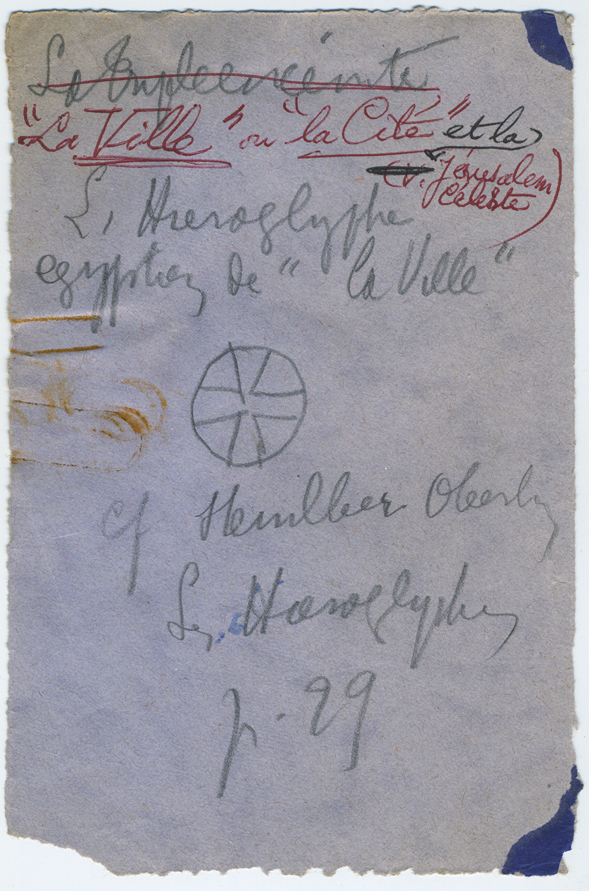 La triple enceinte
"La Ville" ou "la Cité" et la
(v. Jérusalem
Céleste)
L' Hieroglyphe
egyptien de "la Ville"
cf Oberlin
Les Hieroglyphes
p. 29